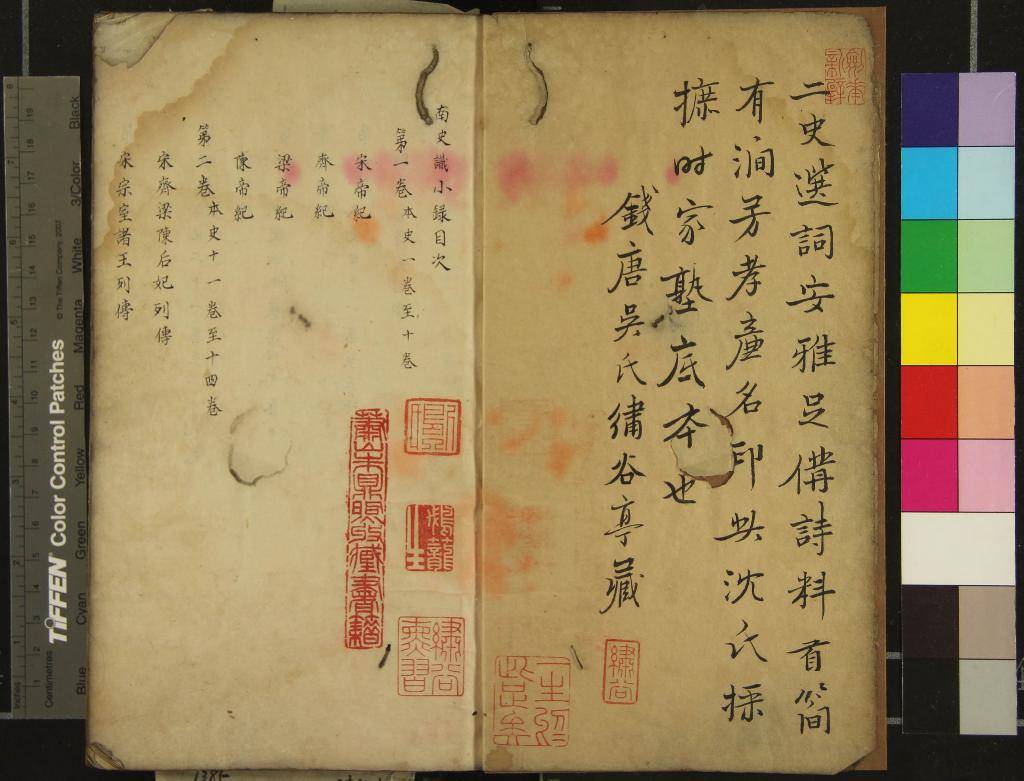 二史選詞安雅足備詩料首簡
有澗芳孝廉名印此沈氏採
摭时家塾底本也
錢唐吳氏繡谷亭藏
繡谷
南史識小録目次
第一卷 本史一卷至十卷
宋帝紀
齊帝紀
梁帝紀
陳帝紀
第二卷 本史十一卷至十四卷
宋齊梁陳后妃列傳
宋宗室諸王列傳
繡谷熏習
蕭山朱鼎煦收藏書籍
TIFFEN Color Control Patches
© The Tiffen Company, 2007
Inches
Centimetres
Blue Cyan Green Yellow Red Magenta White 3/Color Black